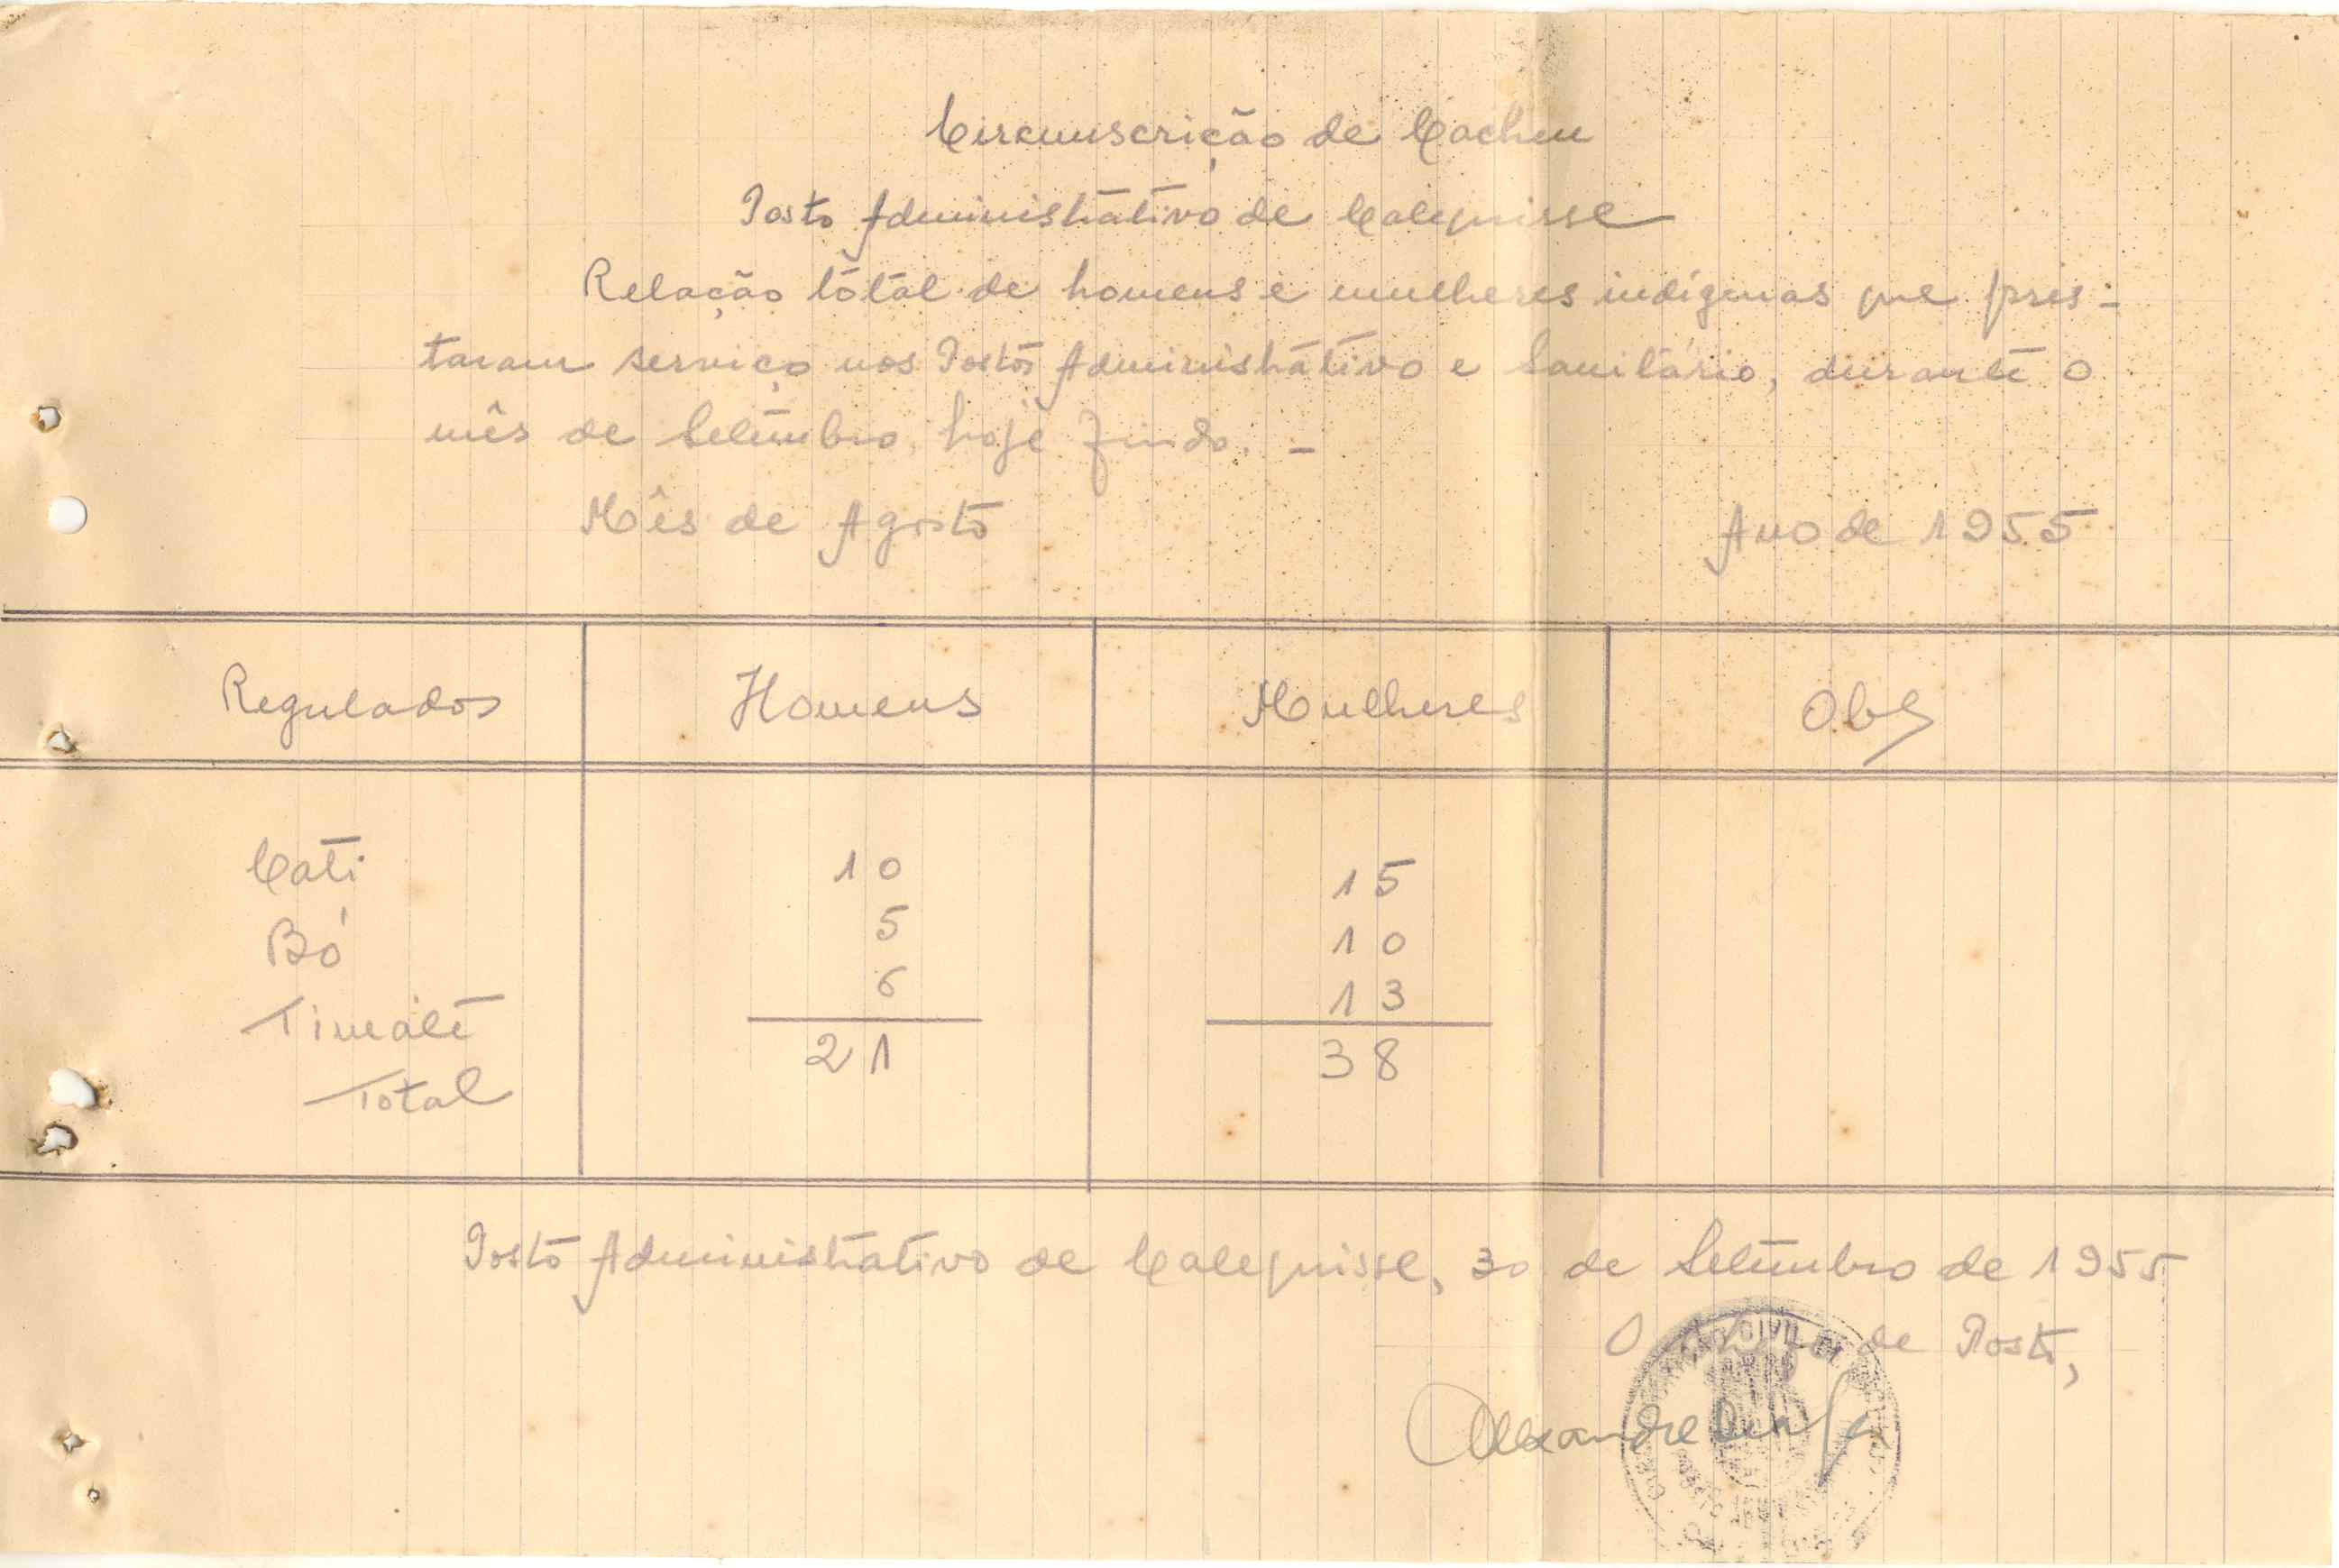 Circunscrição de Cacheu
Posto Administrativo de Calequisse
Relação total de homens e mulheres indígenas que pres-
taram serviço nos Postos Administrativo e Sanitário, durante o
mês de Setembro, hoje findo. -
Mês de Agosto Ano de 1955
Regulados Homens Mulheres Obs
Cati 10 15
Bó 5 10
Timatê 6 13
Total 21 38
Posto Administrativo de Calequisse, 30 de Setembro de 1955
O de Posto,
Alexandre